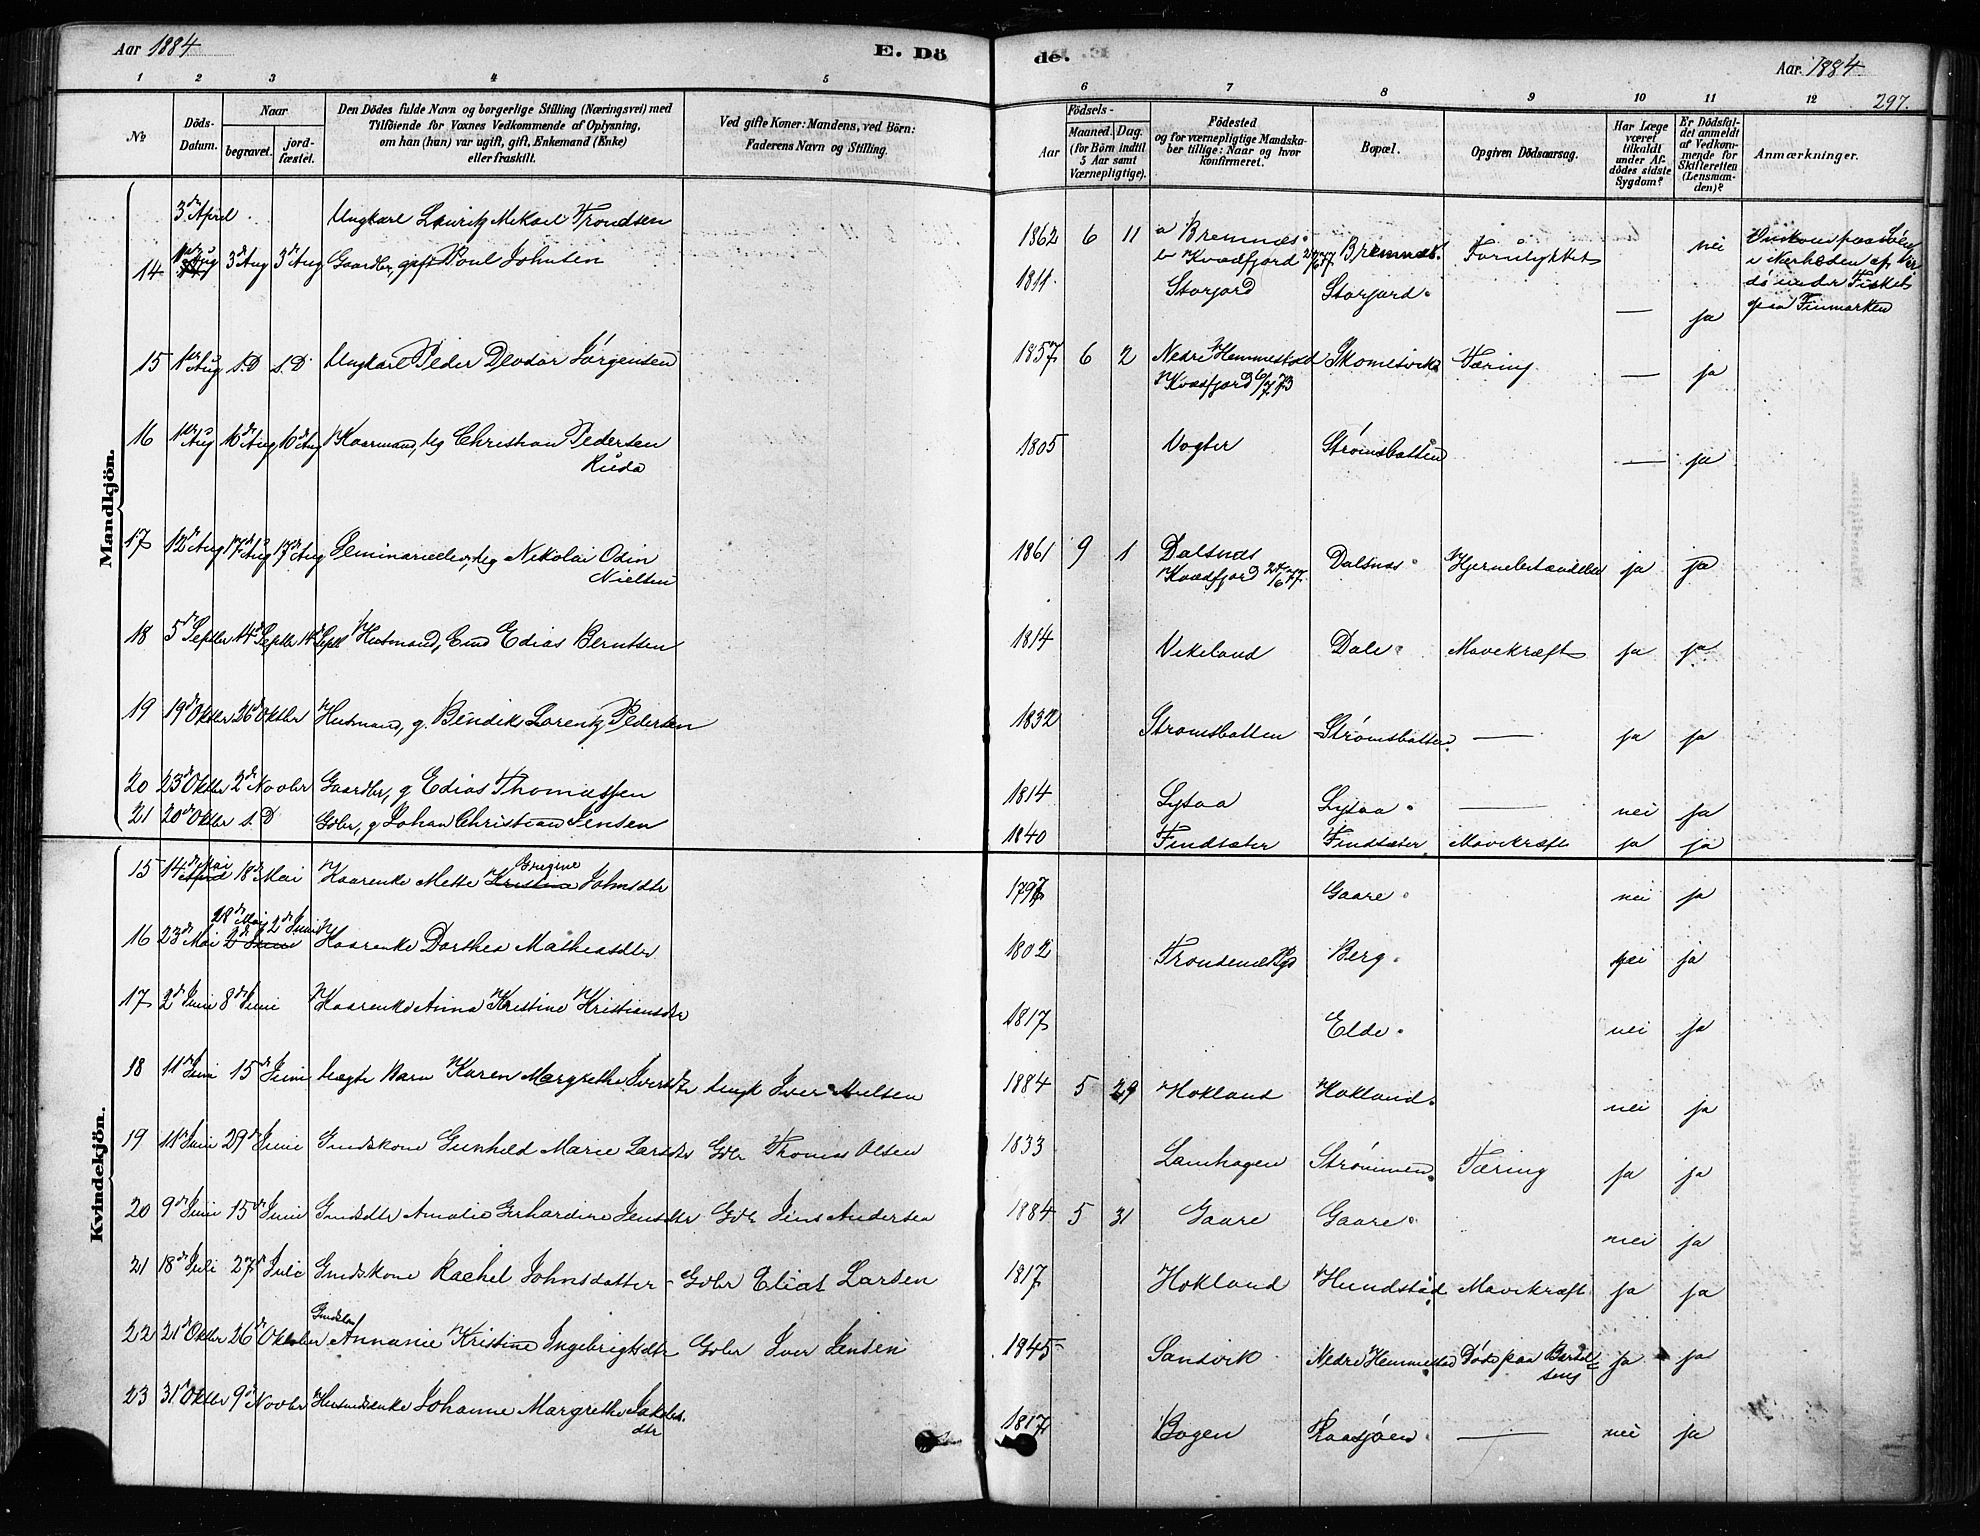 Aar 1884
E. Dö
de.
Aar. 1884
297.
1 2 3 4 5 6 7 8 9 10 11 12
No
Döds-
Datum.
Naar
begravet.
jord-
fæstet.
Den Dödes fulde Navn og borgerlige Stilling (Næringsvei) med
Tilföiende for Voxnes Vedkommende af Oplysning,
om han (hun) var ugift, gift, Enkemand (Enke)
eller fraskilt.
Ved gifte Koner: Mandens, ved Börn:
Faderens Navn og Stilling.
Födsels-
Aar
Maaned. Dag.
(for Börn indtil
5 Aar samt
Værnepligtige).
Födested
og for værnepligtige Mandska-
ber tillige: Naar og hvor
konfirmeret.
Bopæl.
Opgiven Dödsaarsag.
Har Læge
været
tilkaldt
under Af-
dödes sidste
Sygdom?
Er Dödsfal-
det anmeldt
af Vedkom-
mende for
Skifteretten
(Lensman-
den)?
Anmærkninger.
Mandkjön.
3de April Ungkarl Lauritz Mikael Trondsen 1862 6 11 a Bremnæs. b Kvædfjord 24/6 77 Bremnæs. Forulykket — nei
i Nærheden af
dö under Fisket
paa Finmarken
14 3d Aug 3d Aug Gaardbr, gift Poul Johnsen 1811. Storjord Storjord. — ja
15 1ste Aug s.D s.D. Ungkarl Peder Deodor Jörgensen 1857 6 2 Nedre Hemmestad Kvædfjord 6/7 73 Skomesvik. Tæring — ja
16 16de Aug 16de Aug Kaarmand, Ug Christian Pedersen
Ruda 1805 Vogter Strömsbotten — ja
17 12de Aug 17de Aug 17de Aug Seminarieelev, Ug Nikolai Odin
Nielsen 1861 9 1 Dalsnæs Kvædfjord 24/6 77. Dalsnæs. Hjernebetændelse ja ja
18 5d Septbr 14d Septbr 14d Septb Husmand, Emd Edias Berntsen 1814 Vikeland Dale. Mavekræft ja ja
19 19d Oktbr 26d Oktbr Husmand, g. Bendik Lorentz Pedersen 1832 Strömsbotten Strömsbotten. — ja ja
20 23d Oktbr 2d Novbr Gaardbr, g Edias Thomassen 1814 Lysaa Lysaa. — nei ja
21 20d Oktbr s.D Gdbr, g Johan Christian Jensen 1840 Findsæter Findsæter. Mavekræft ja ja
Kvindekjön.
15 14de Mai April 18d Mai Kaarenke Mette Kristine Bregine Johnsdtr 1797 Gaare. nei ja
16 23d Mai 28de Mai 2d Juni 2d Juni Kaarenke Dorthea Mathiasdtr 1802 Trondenæs Pgd Berg. nei ja
17 2d Juni 8d Juni Kaarenke Anna Kristine Kristiansdtr 1817 Elde. nei ja
18 11d Juni 15d Juni Uægte Barn Karen Margrethe Iversdtr Ungk Iver Nielsen 1884 5 29 Hokland Hokland. nei ja
19 11d Juni 29d Juni Gmdskone Gunhild Marie Larsdtr Gdbr Thomas Olsen 1833 Lamhagen Strömmen. Tæring ja ja
20 9d Juni 15d Juni Gmdsdtr Amalie Gerhardine Jensdtr Gdbr Jens Andersen 1884 5 31 Gaare Gaare. nei ja
21 18d Juli 27d Juli Gmdskone Rachel Johnsdatter - Gdbr Elias Larsen 1817 Hokland Hundstad Mavekræft ja ja
22 21d Oktbr 26d Oktober Annanie Kristine Ingebrigtsdtr Gdbr Iver Jensen 1845 Sandvik Nedre Hemmestad Död paa Barsel-
seng ja ja
23 31d Oktbr 9d Novbr Husmdsenke Johanne Margrethe Jakobs
dtr 1817 Bogen Raasjöen. — nei ja